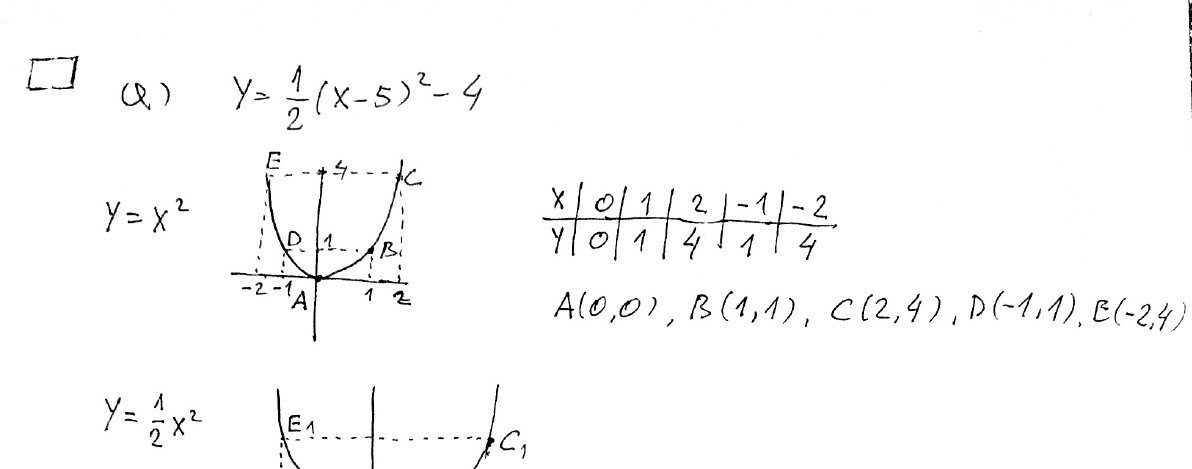 a) y = 1/2 (x-5)² - 4
y = x²
E 4 C
D 1 B
-2 -1 A 1 2
x | 0 | 1 | 2 | -1 | -2
y | 0 | 1 | 4 | 1 | 4
A(0,0), B(1,1), C(2,4), D(-1,1), E(-2,4)
y = 1/2 x²
E1 C1